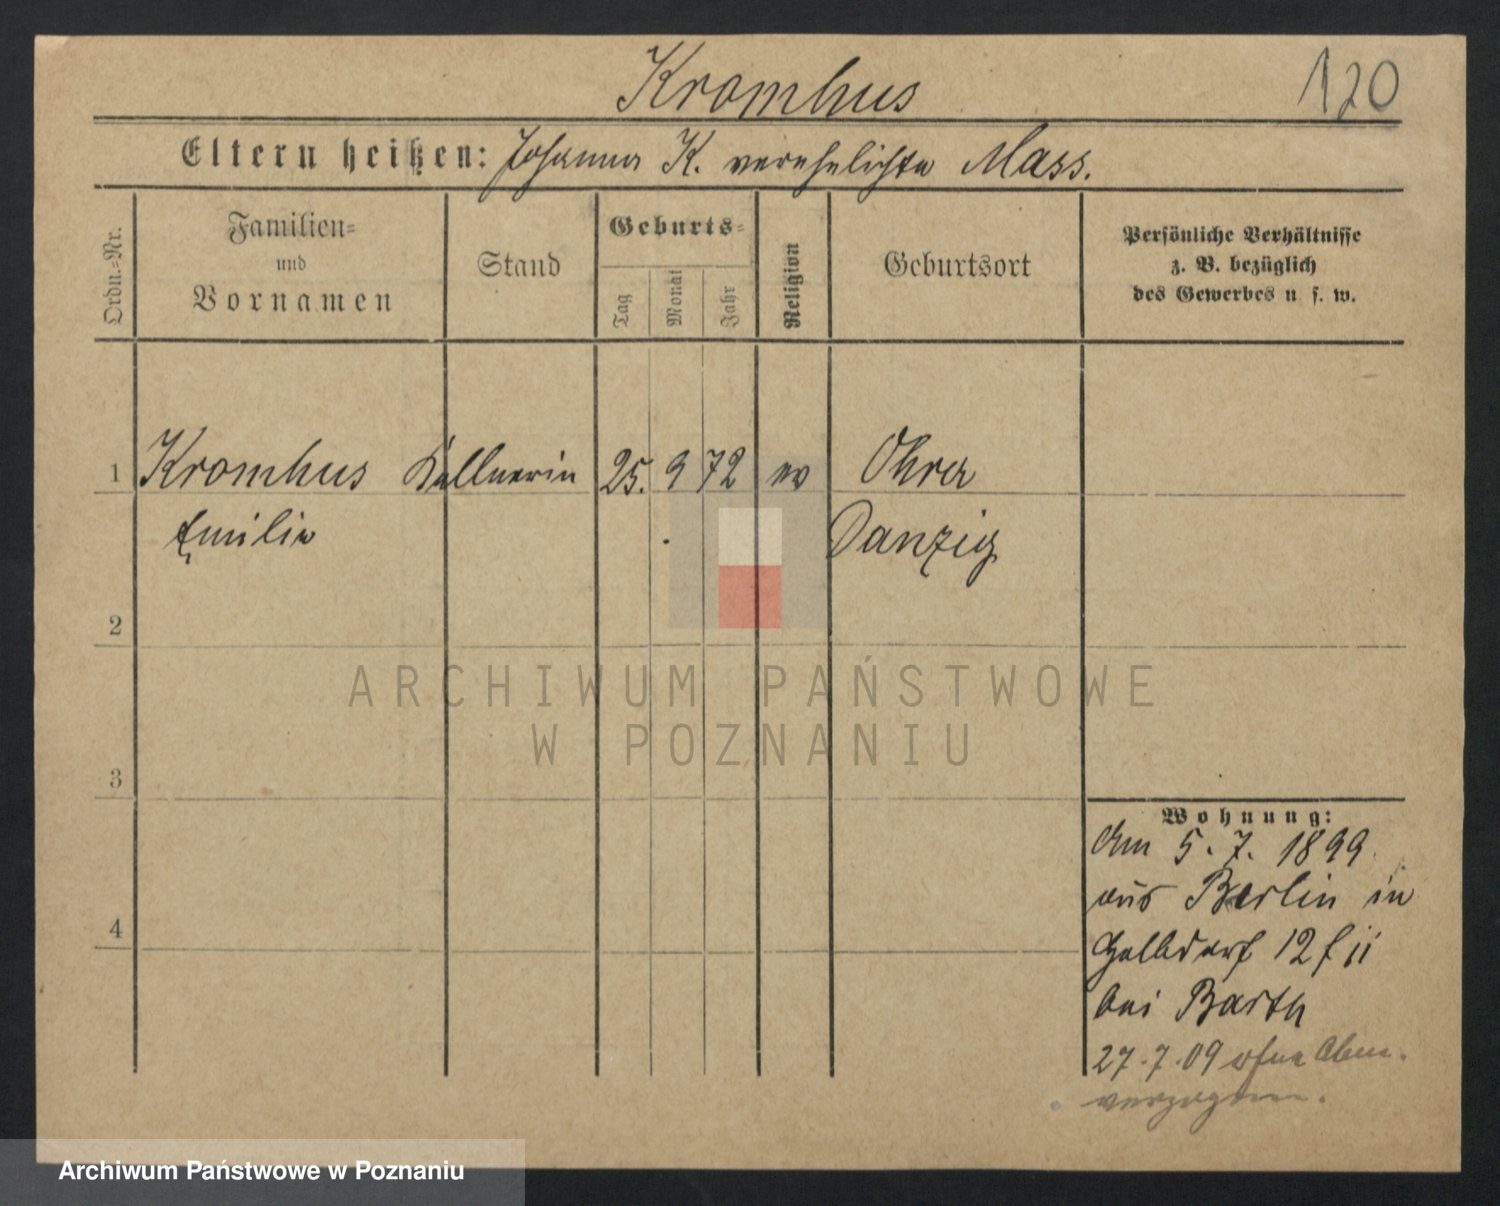 Kromhus
120
Eltern heißen: Johanna K. verehelichte Mass.
Ordn.-Nr.
Familien-
und
Vornamen
Stand
Geburts-
Tag
Monat
Jahr
Religion
Geburtsort
Persönliche Verhältnisse
z. B. bezüglich
des Gewerbes u. s. w.
1 Kromhus Kellnerin 25. 9 72 ev Ohra
Emilie Danzig
2
3
4
Wohnung:
Am 5. 7. 1899
aus Berlin in
12
bei Barth
27. 7. 09 ohne Abm.
verzogen.
ARCHIWUM PAŃSTWOWE
W POZNANIU
Archiwum Państwowe w Poznaniu